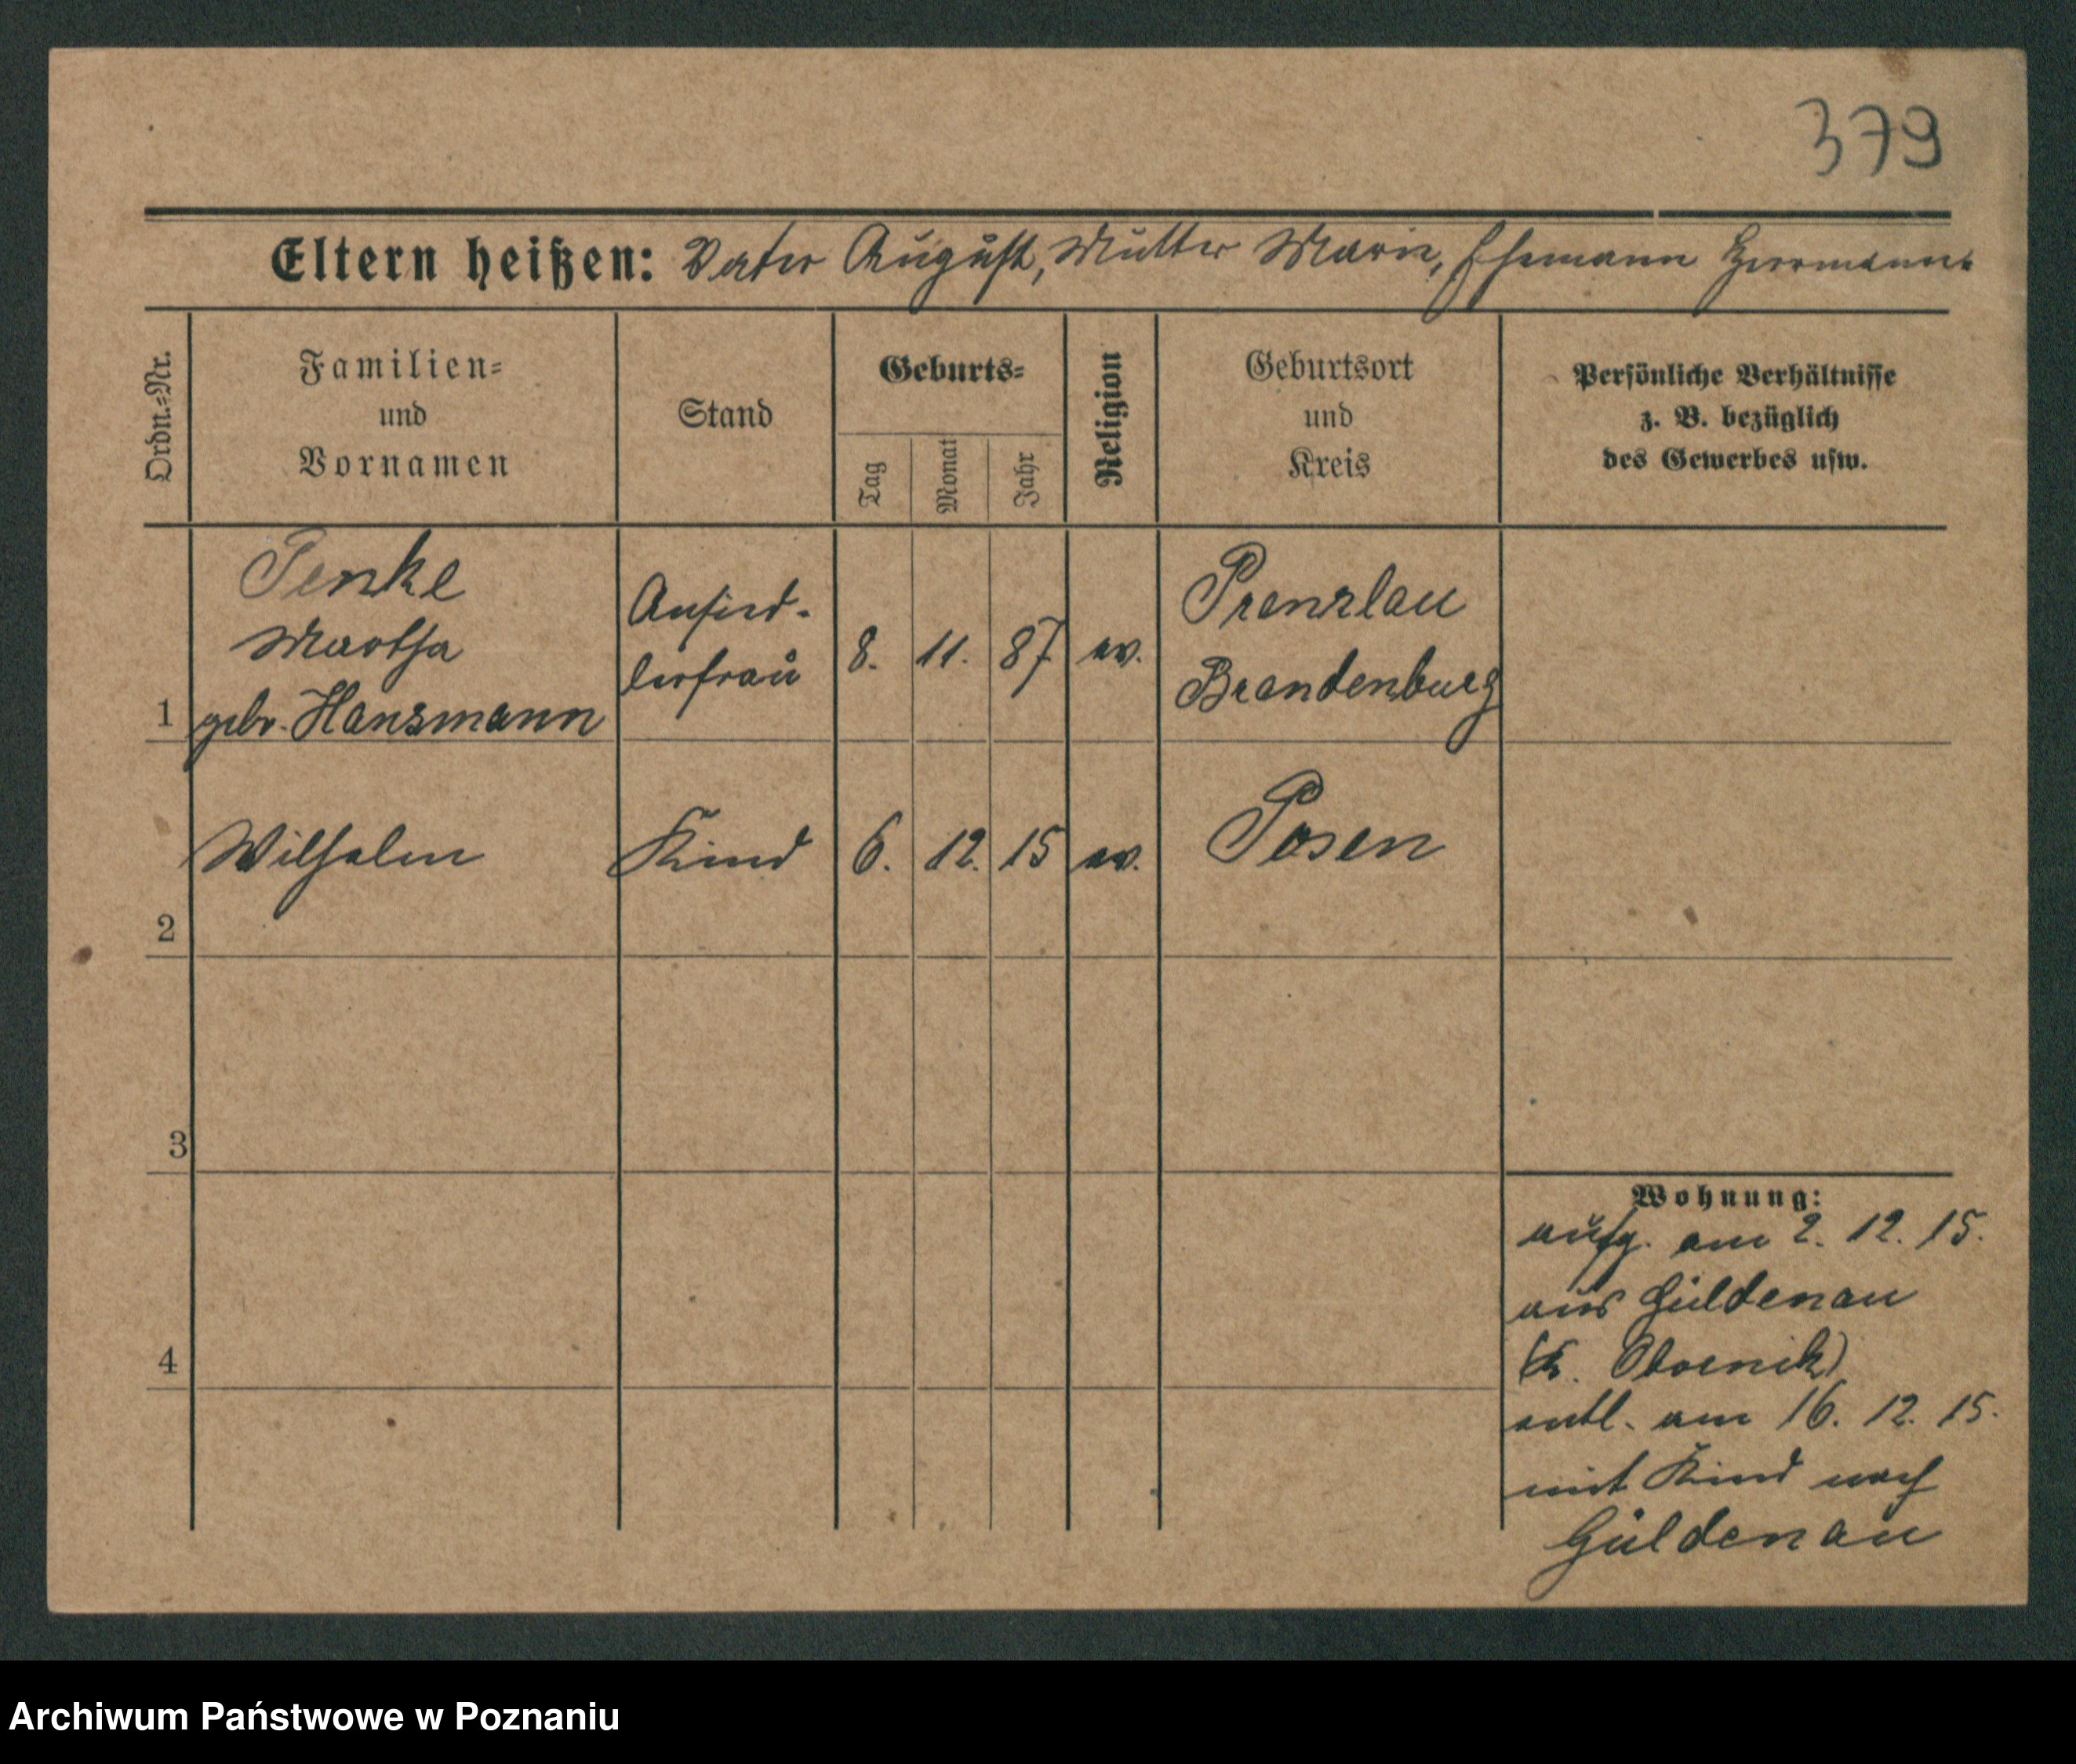 379
Eltern heißen: Vater August, Mutter Marie, Ehemann Herrmann.
Ordn.=Nr.
Familien=
und
Vornamen
Stand
Geburts=
Tag
Monat
Jahr
Religion
Geburtsort
und
Kreis
Persönliche Verhältnisse
z. B. bezüglich
des Gewerbes usw.
1
Penke
Martha
gebr. Hansmann
Ansied-
lerfrau
8. 11. 87 ev.
Prenzlau
Brandenburg
2
Wilhelm Kind 6. 12. 15 ev. Posen
3
4
Wohnung:
aufg. am 2. 12. 15.
aus Güldenau
(K. Obornik)
entl. am 16. 12. 15.
mit Kind nach
Güldenau
Archiwum Państwowe w Poznaniu